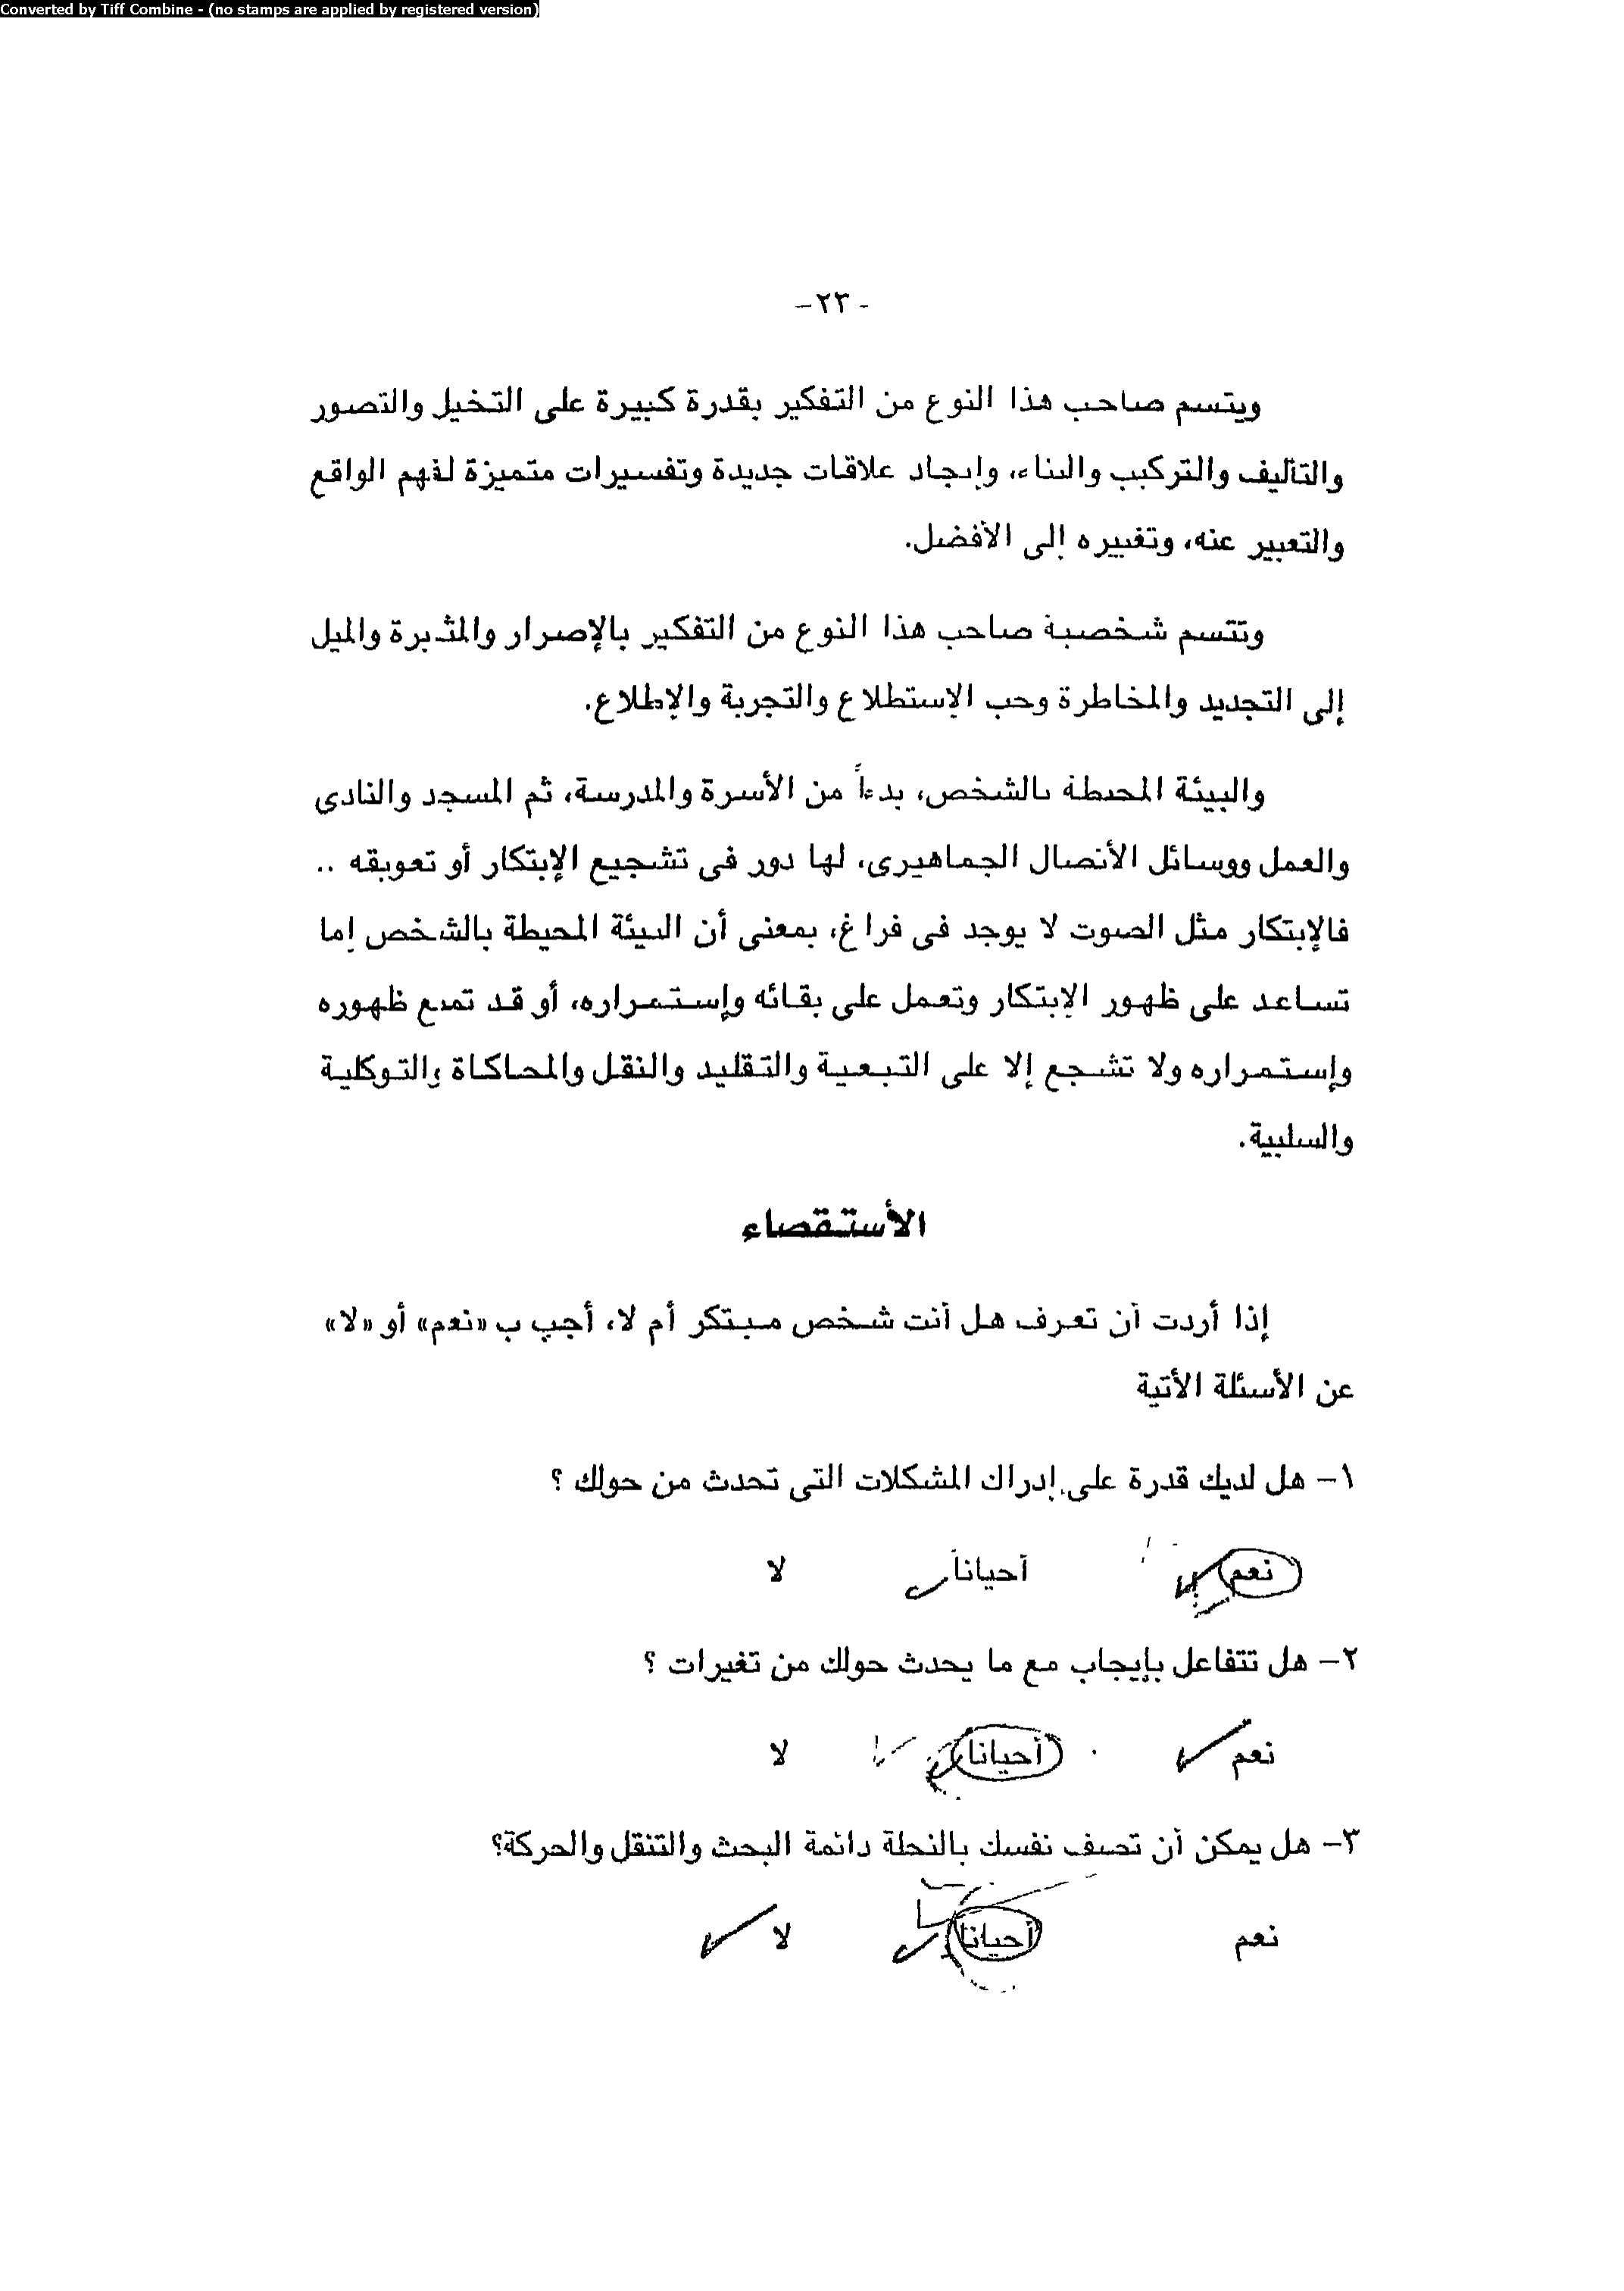 Converted by Tiff Combine - (no stamps are applied by registered version)
- ٢٣-
ويتسم صاحب هذا النوع من التفكير بقدرة كبيرة على التخيل والتصور
والتأليف والتركيب والبناء، وإيجاد علاقات جديدة وتفسيرات متميزة لفهم الواقع
والتعبير عنه، وتغييره إلى الأفضل.
وتتسم شخصية صاحب هذا النوع من التفكير بالإصرار والمثبرة والميل
إلى التجديد والمخاطرة وحب الإستطلاع والتجربة والإطلاع.
والبيئة المحيطة بالشخص، بدءاً من الأسرة والمدرسة، ثم المسجد والنادى
والعمل ووسائل الأتصال الجماهيرى، لها دور فى تشجيع الإبتكار أو تعويقه ..
فالإبتكار مثل الصوت لا يوجد فى فراغ، بمعنى أن البيئة المحيطة بالشخص إما
تساعد على ظهور الإبتكار وتعمل على بقائه وإستمراره، أو قد تمنع ظهوره
وإستمراره ولا تشجع إلا على التبعية والتقليد والنقل والمحاكاة والتوكلية
والسلبية.
الأستقصاء
إذا أردت أن تعرف هل أنت شخص مبتكر أم لا، أجب ب «نعم» أو «لا»
عن الأسئلة الأتية
١- هل لديك قدرة على إدراك المشكلات التى تحدث من حولك ؟
نعم أحياناً لا
٢- هل تتفاعل بإيجاب مع ما يحدث حولك من تغيرات ؟
نعم أحيانا لا
٣- هل يمكن أن تصف نفسك بالنحلة دائمة البحث والتنقل والحركة؟
نعم أحيانا لا